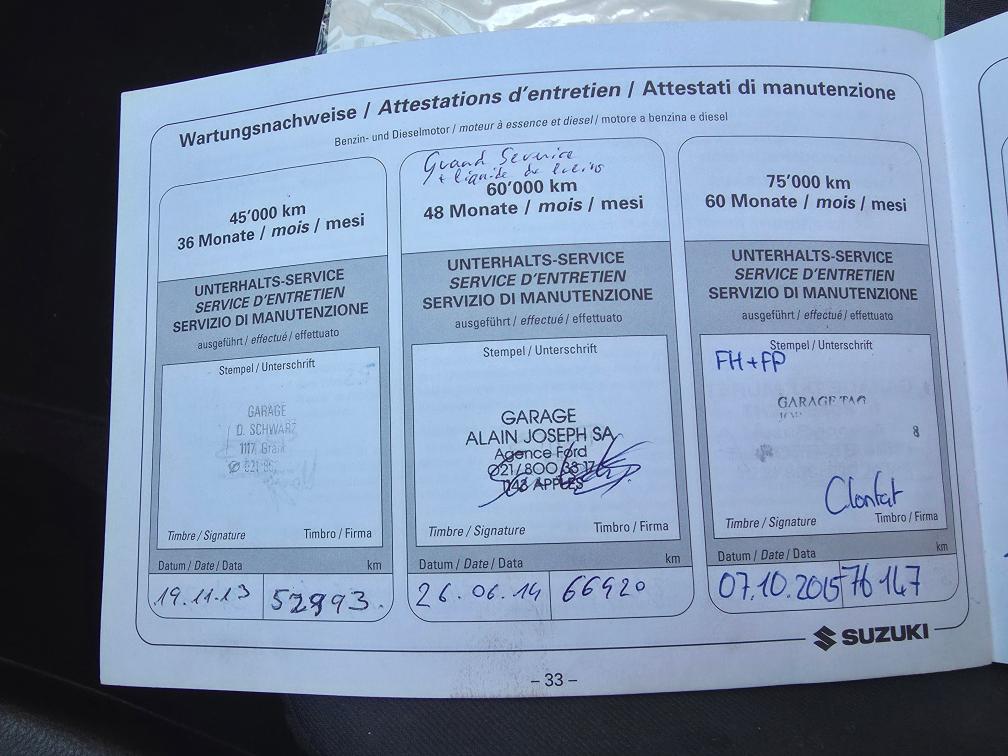 Wartungsnachweise / Attestations d'entretien / Attestati di manutenzione
Benzin- und Dieselmotor / moteur à essence et diesel / motore a benzina e diesel
45'000 km
36 Monate / mois / mesi
UNTERHALTS-SERVICE
SERVICE D'ENTRETIEN
SERVIZIO DI MANUTENZIONE
ausgeführt / effectué / effettuato
Stempel / Unterschrift
GARAGE
D. SCHWARZ
1117
021
Timbre / Signature Timbro / Firma
Datum / Date / Data km
19.11.13 52993.
Grand Service
+ liquide de freins
60'000 km
48 Monate / mois / mesi
UNTERHALTS-SERVICE
SERVICE D'ENTRETIEN
SERVIZIO DI MANUTENZIONE
ausgeführt / effectué / effettuato
Stempel / Unterschrift
GARAGE
ALAIN JOSEPH SA
Agence Ford
021/800
1143 APPLES
Timbre / Signature Timbro / Firma
Datum / Date / Data km
26.06.14 66920
75'000 km
60 Monate / mois / mesi
UNTERHALTS-SERVICE
SERVICE D'ENTRETIEN
SERVIZIO DI MANUTENZIONE
ausgeführt / effectué / effettuato
Stempel / Unterschrift
FH+FP
GARAGE
8
Timbre / Signature Timbro / Firma
Datum / Date / Data km
07.10.2015 76147
SUZUKI
– 33 –